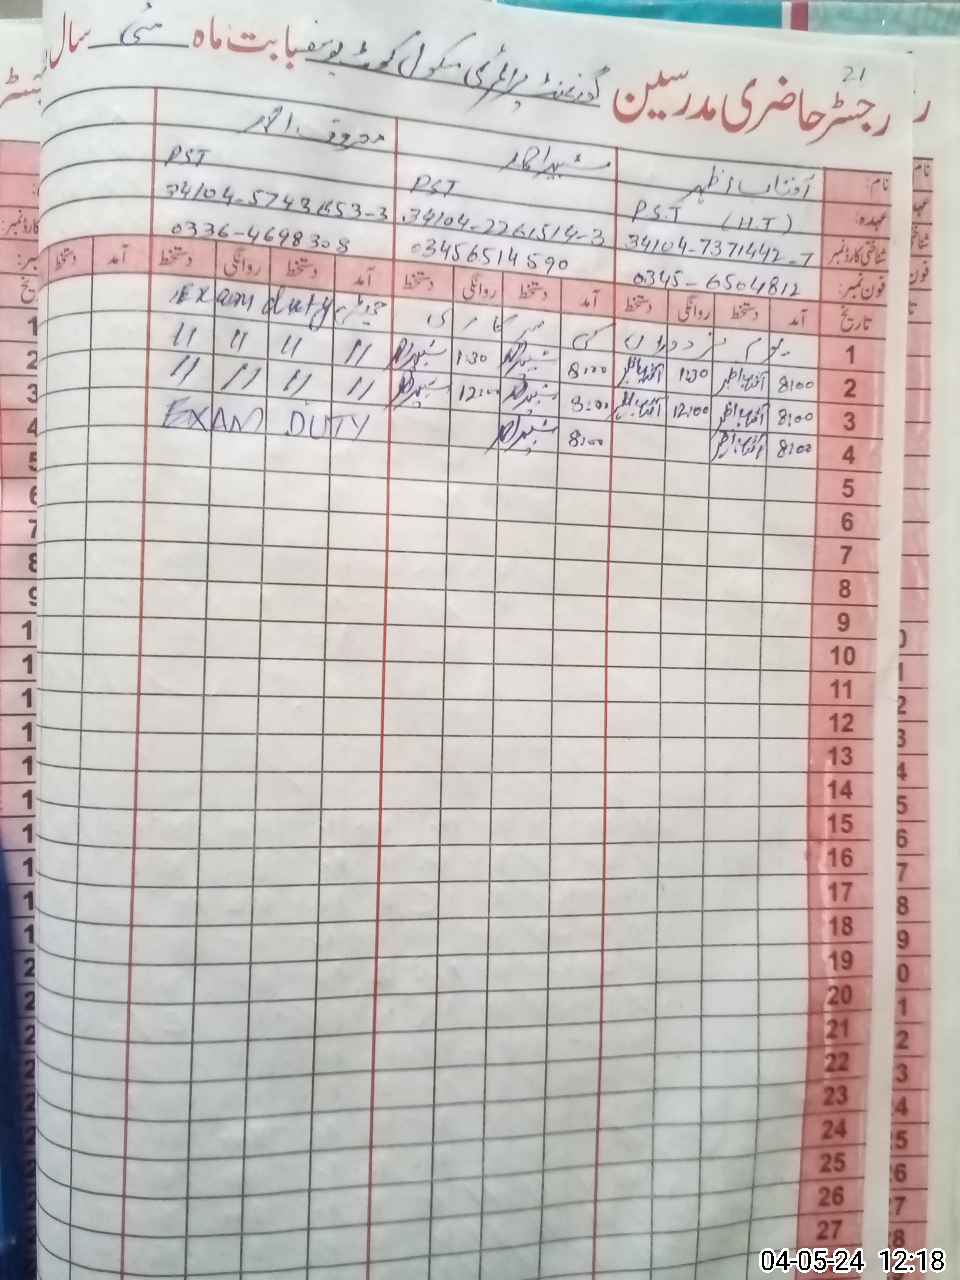 21
رجسٹر حاضری مدرسین گورنمنٹ پرائمری سکول کوٹ یوسف بابت ماہ مئی سال
نام: آفتاب اظہر شبیر احمد احمد
عہدہ: P.S.T (H.T) PST PST
شناختی کارڈ نمبر: 34104-7371442-7 34104-2261514-3 34104-5743653-3
فون نمبر: 0345-6504812 03456514590 0336-4698308
تاریخ آمد دستخط روانگی دستخط آمد دستخط روانگی دستخط آمد دستخط روانگی دستخط آمد دستخط
1 یوم مزدوراں کی سرکاری Exam duty
2 8:00 1:30 8:00 1:30 11 11 11 11
3 8:00 12:00 8:00 12:00 11 11 11 11
4 8:00 8:00 EXAM DUTY
5
6
7
8
9
10
11
12
13
14
15
16
17
18
19
20
21
22
23
24
25
26
27
04-05-24 12:18